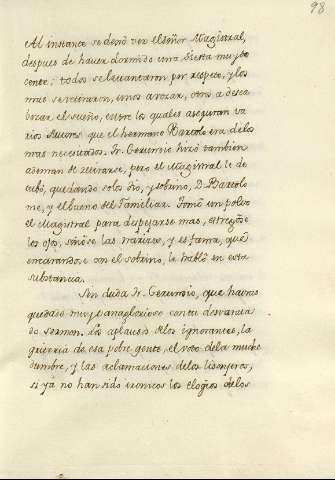 98
Al instante se dexó ver el señor Magistral,
despues de haver dormido una siesta muy de
cente; todos se levantaron por respeto, y los
mas se retiraron, unos a rezar, otros a desca
bezar el sueño, entre los quales aseguran va
rios Autores que el hermano Bartolo era de los
mas necesitados. Fr. Gerundio hizo tambien
ademan de retirarse, pero el Magistral le de
tubó, quedando solos tio, y sobrino, D. Bartolo
me, y el bueno del Familiar. Tomó un polvo
el Magistral para despejarse mas, estregóse
los ojos, sonóse las narices, y es fama, que
encarandose con el sobrino, le habló en esta
substancia.
Sin duda Fr. Gerundio, que havras
quedado muy vanaglorioso con tu desvaria
do sermon. Los aplausos de los ignorantes, la
griteria de esa pobre gente, el voto de la muche
dumbre, y las aclamaciones de los lisonjeros,
si yá no han sido ironicos los elogios de los